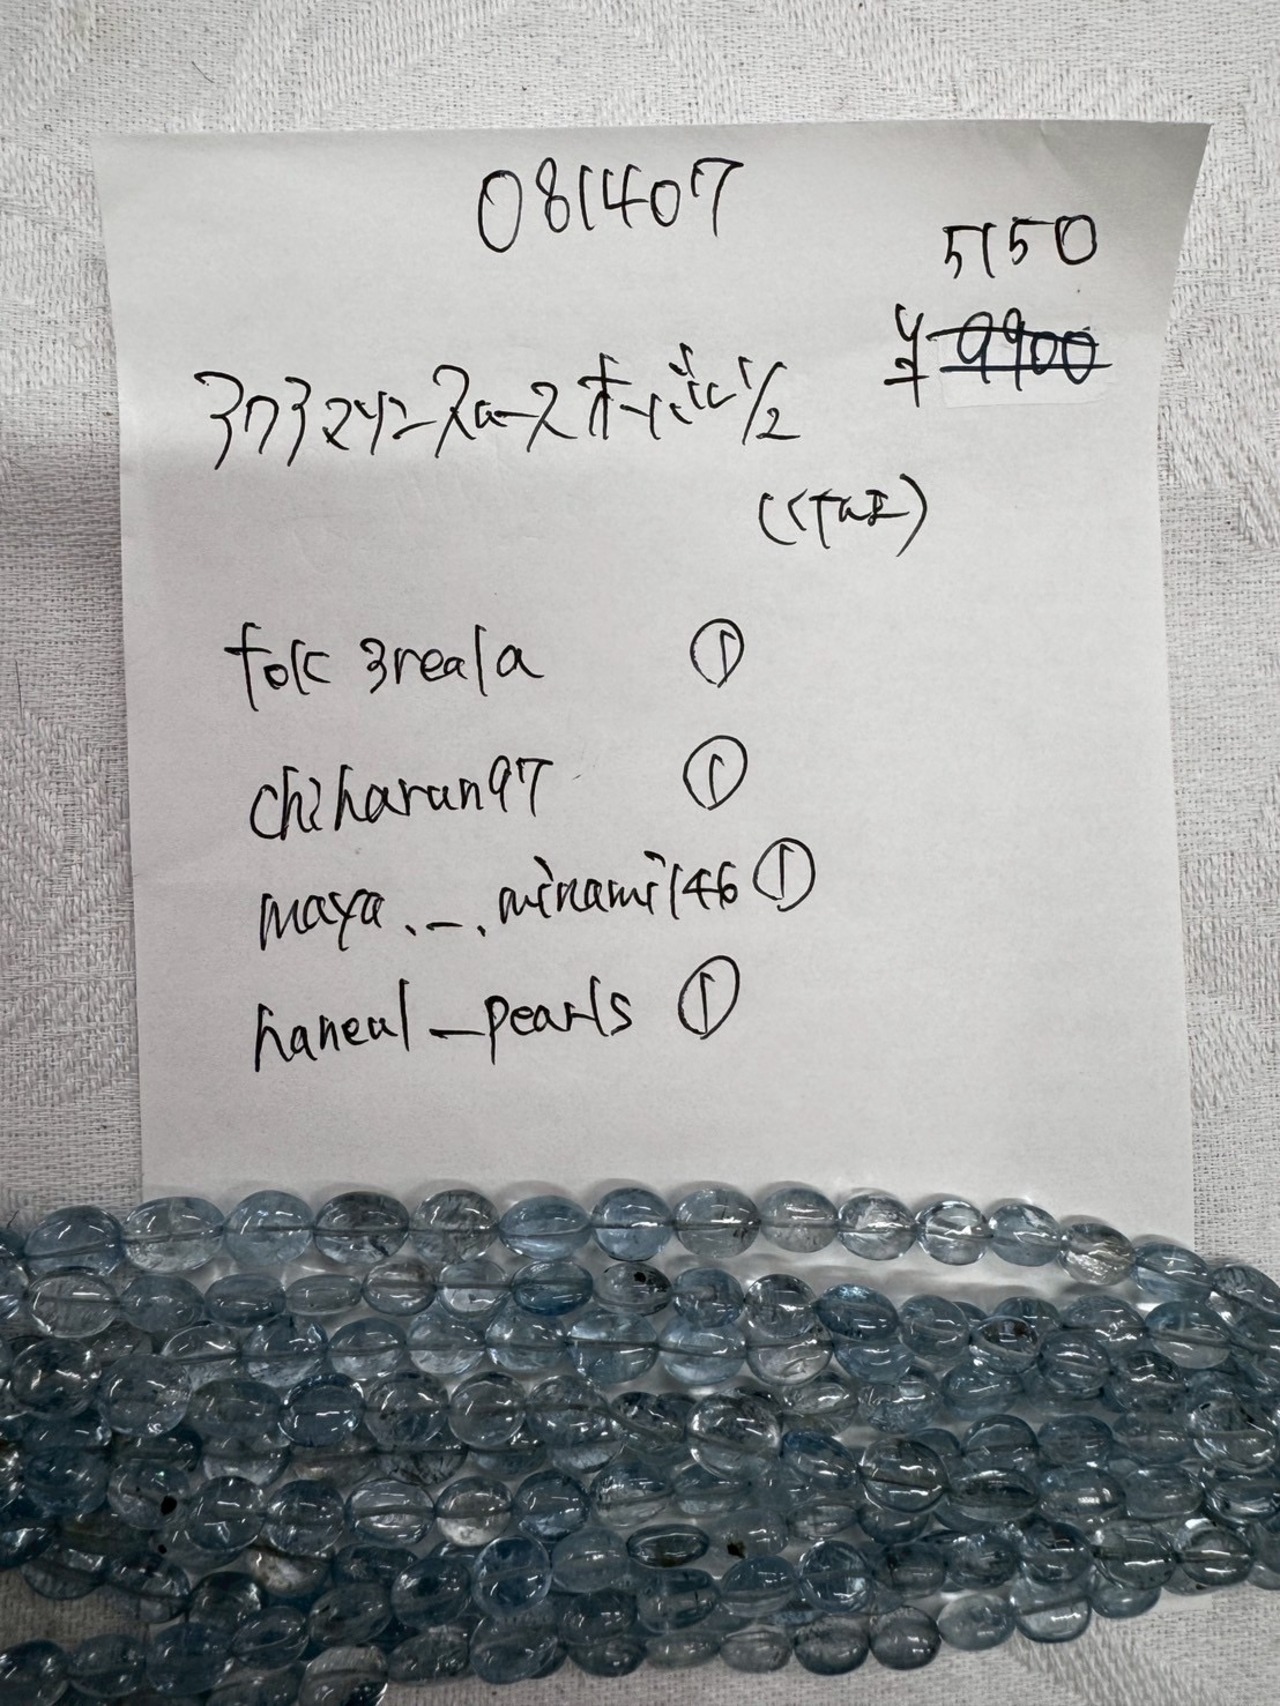 081407
5150
¥9900
アクアマリンスムースオーバル 1/2
folk3reala ①
chiharun97 ①
maya._.minami146 ①
haneul_pearls ①